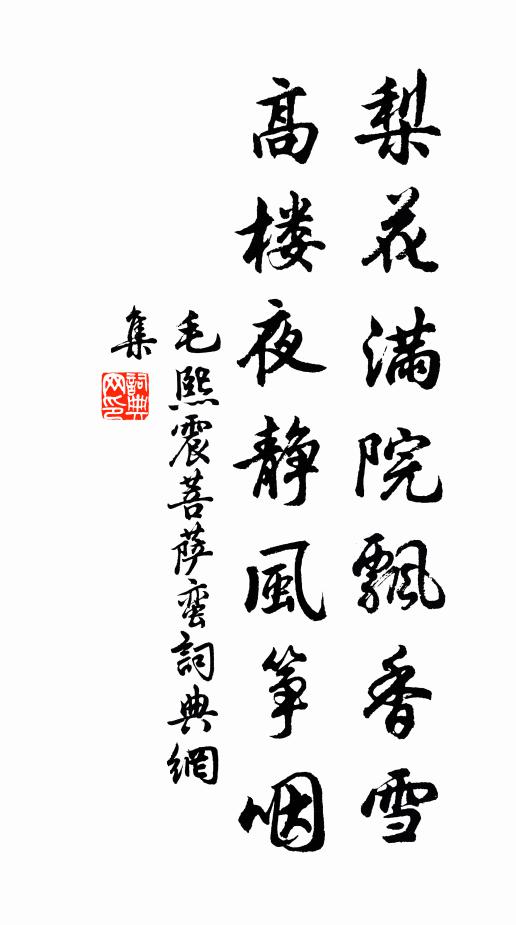 梨花满院飄香雪
高楼夜静風筝咽
毛熙震菩萨蛮詞典網
集
詞典网印